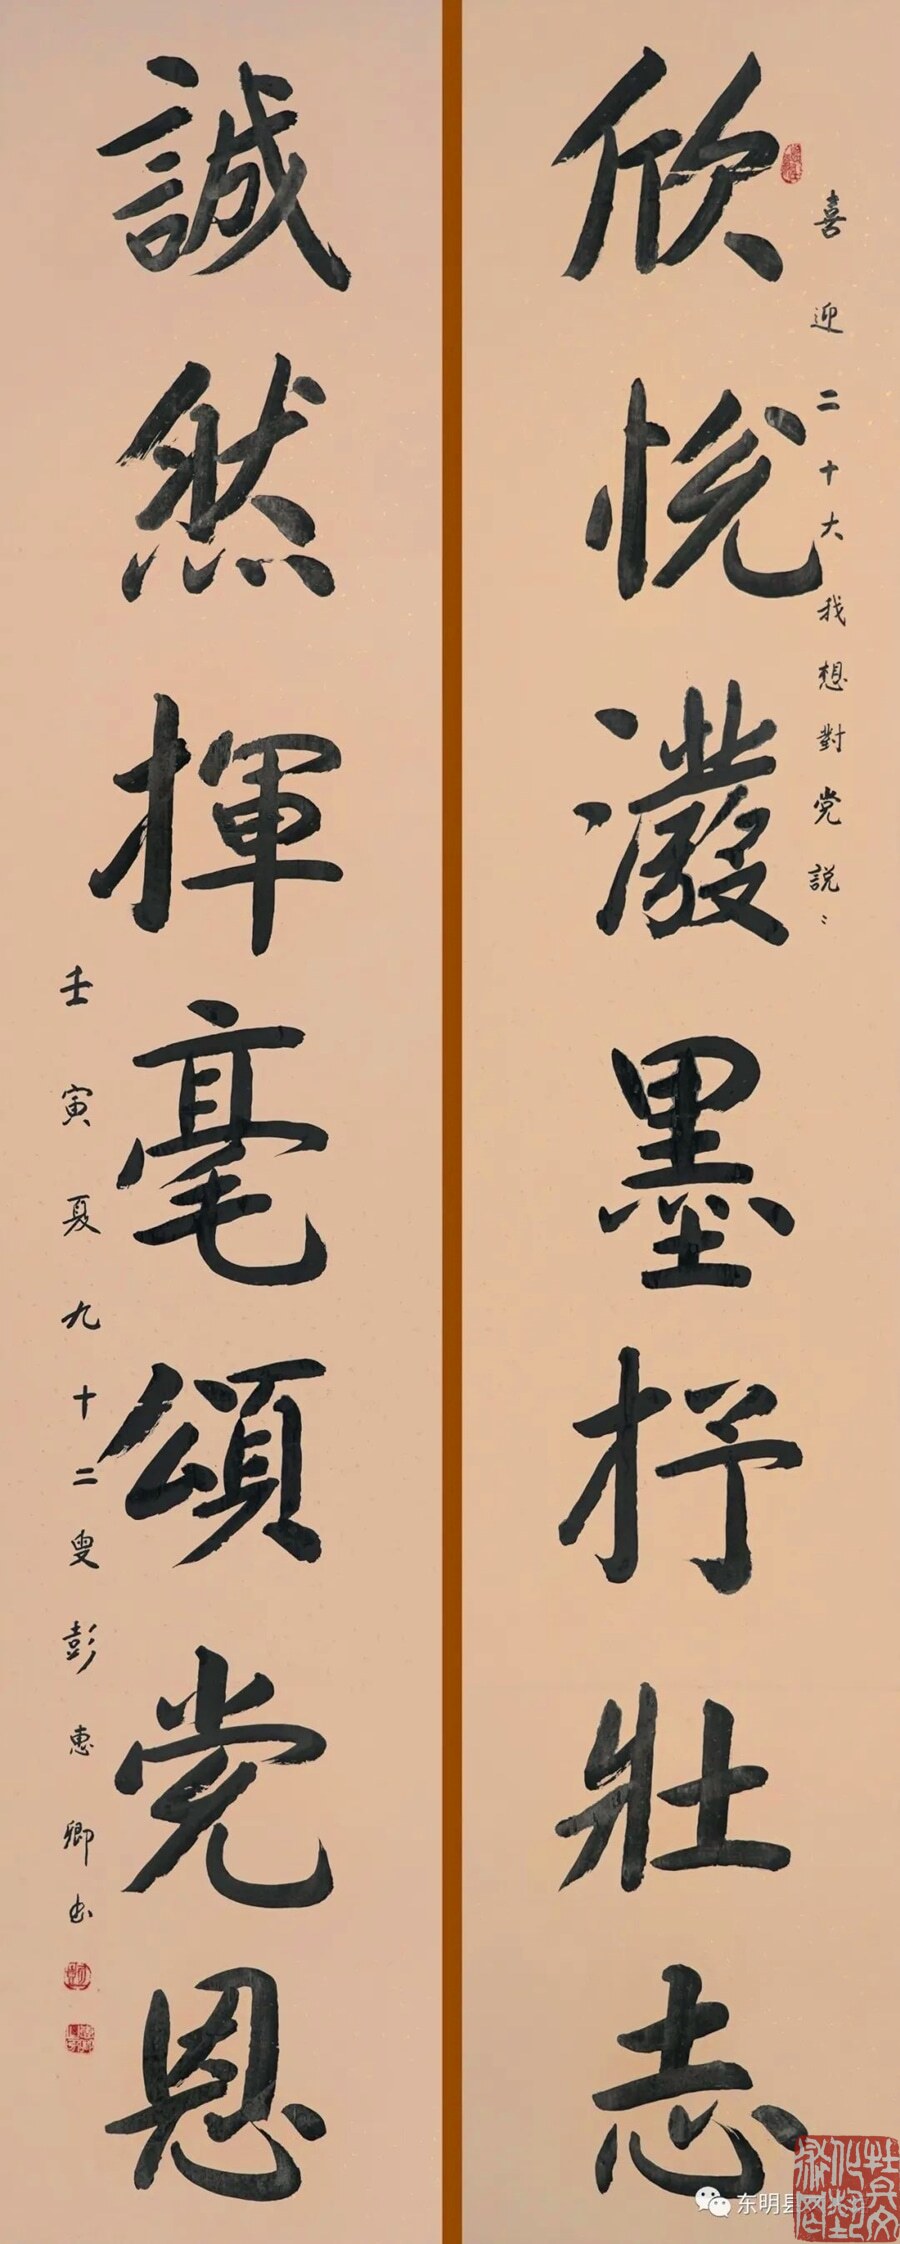 喜迎二十大我想對党説：
欣悦潑墨抒壯志
誠然揮毫頌党恩
壬寅夏九十二叟彭惠卿书
东明县